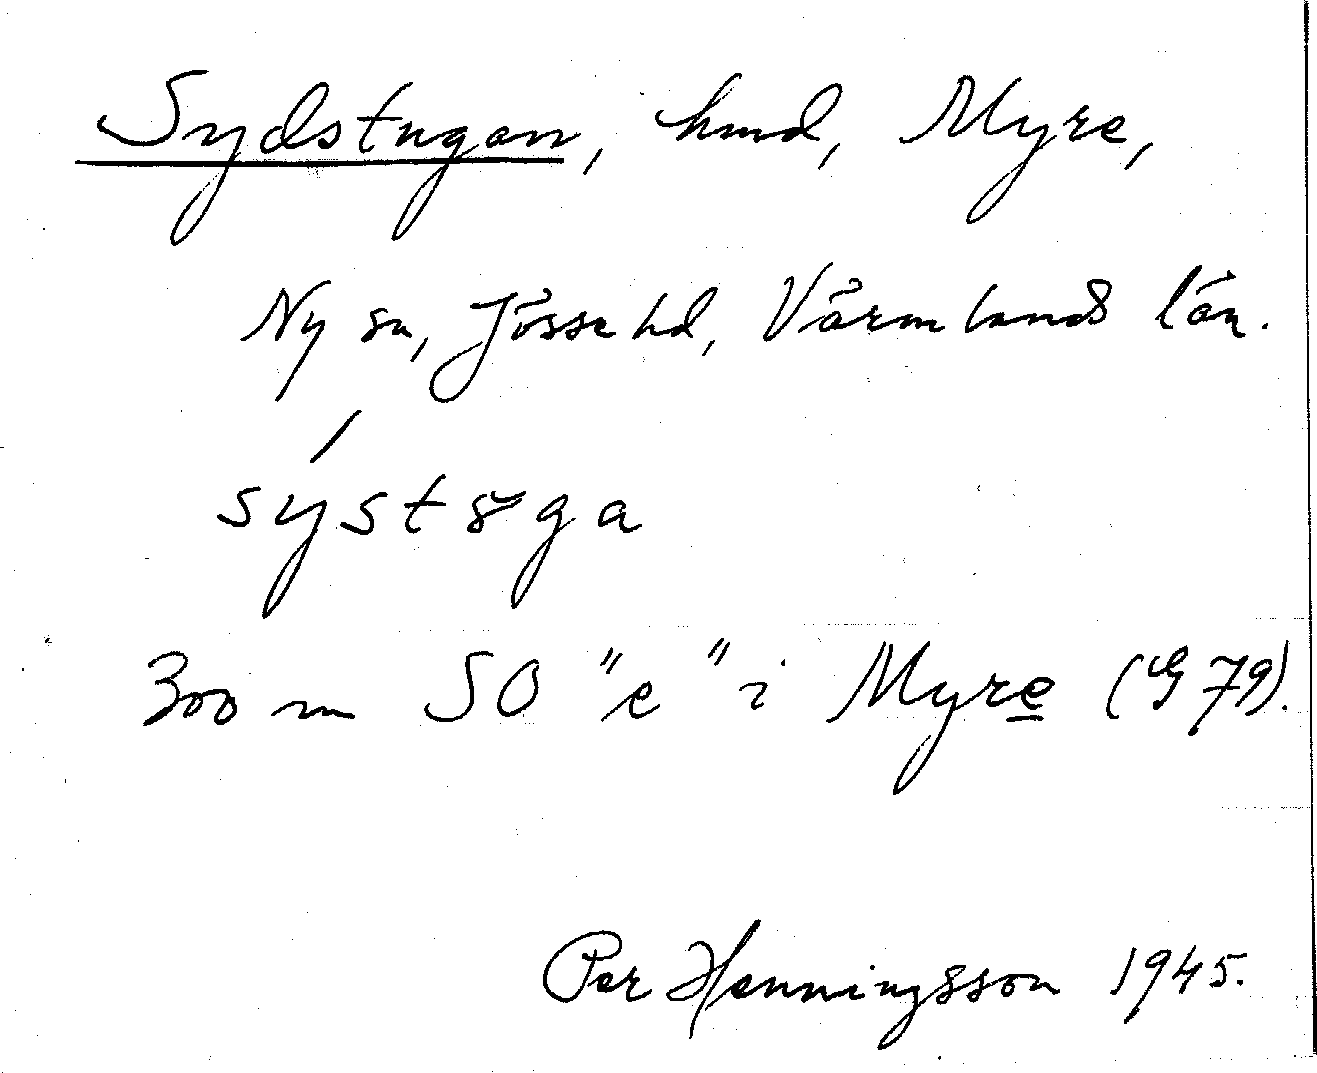 Sydstugan, hmd, Myre,
Ny sn, Jösse hd, Värmlands län.
sýstꞷga
300 m SO "e" i Myre (G 79).
Per Henningsson 1945.